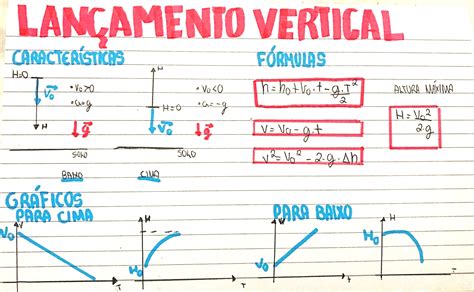 LANÇAMENTO VERTICAL
CARACTERÍSTICAS
H=0
• V₀>0
• a=g
V₀
H
g
SOLO
BAIXO
H
• V₀<0
• a=-g
H=0
V₀
g
SOLO
CIMA
FÓRMULAS
h = h₀+V₀.t-g.T²/2
V = V₀-g.t
V² = V₀² - 2.g.Δh
ALTURA MÁXIMA
H = V₀²/2g
GRÁFICOS
PARA CIMA
V
V₀
T
H
H₀
T
PARA BAIXO
V
V₀
t
H
H₀
T